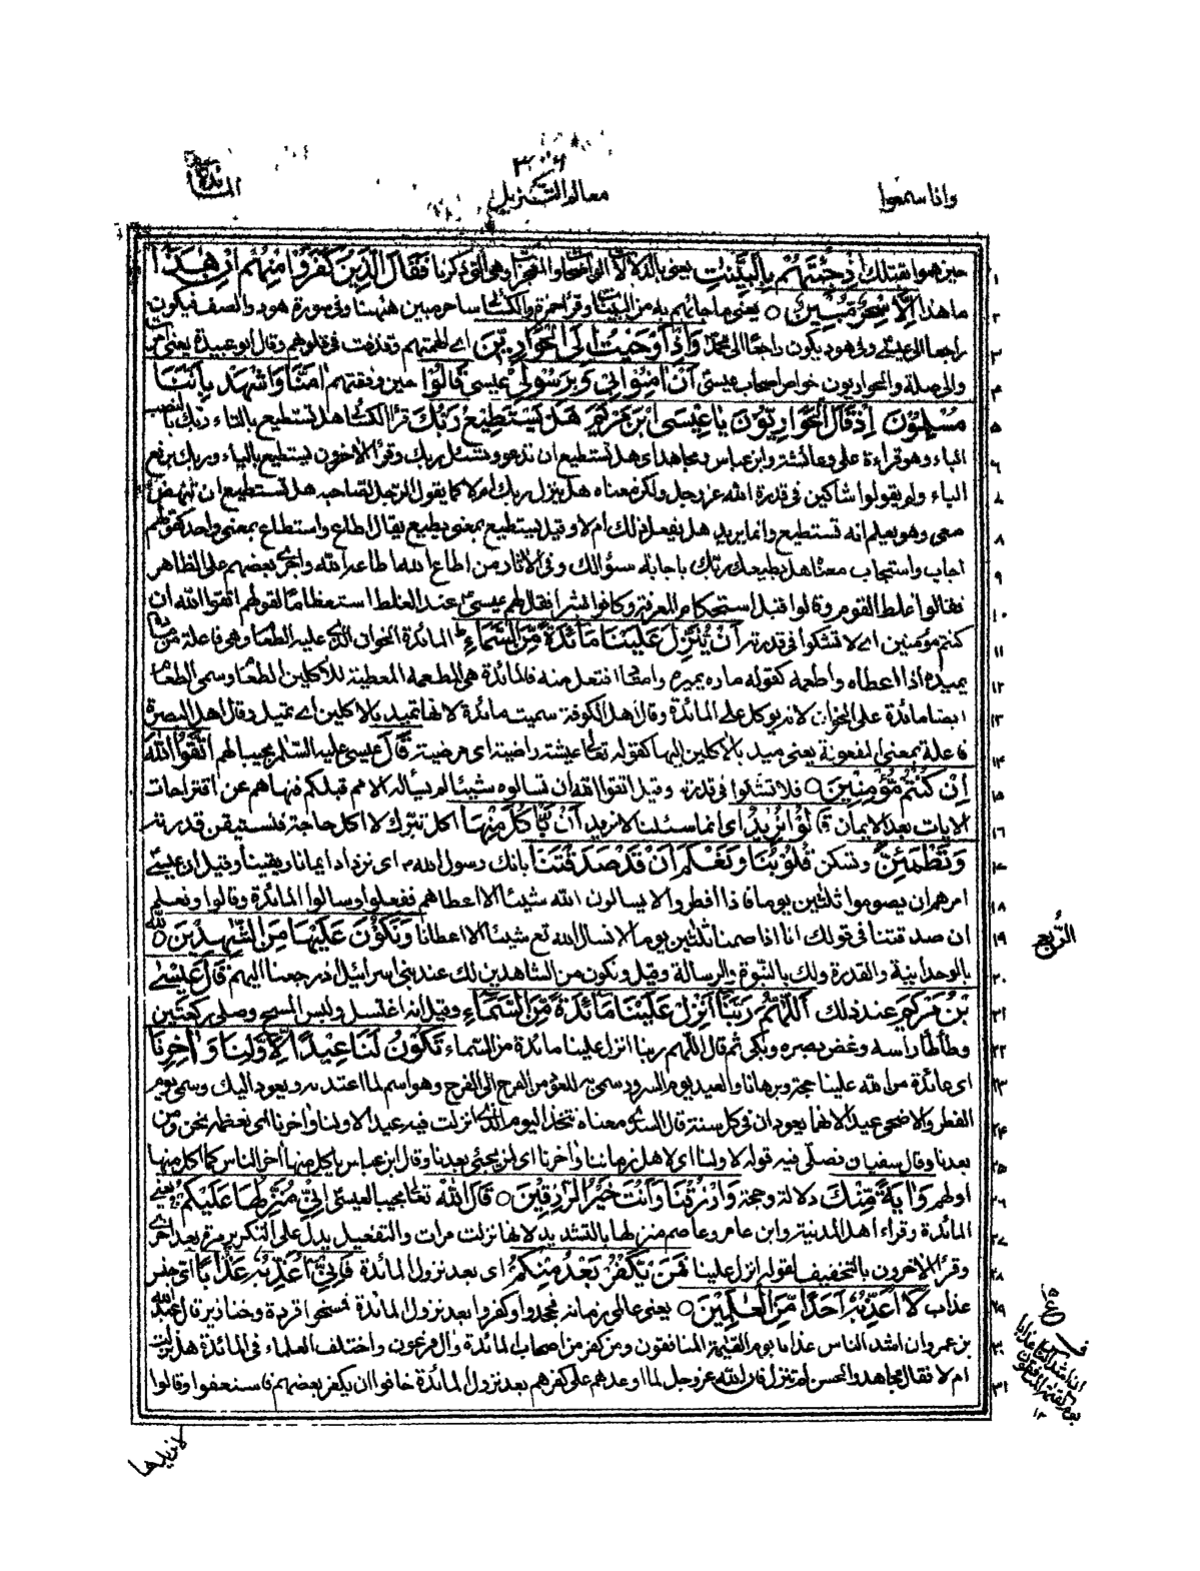 واذا سمعوا
٣٠٦
معالم التنزيل
المائدة
١ حين هموا بقتلك اِذْ جِئْتَهُمْ بِالْبَيِّنٰتِ يعنى بالدلالات الواضحات والمعجزات وهى التى ذكرنا فَقَالَ الَّذِيْنَ كَفَرُوْا مِنْهُمْ اِنْ هٰذَا
٢ ما هذا اِلَّا سِحْرٌ مُّبِيْنٌ ○ يعنى ما جاءهم به من البينات وقرأ حمزة والكسائى ساحر مبين ههنا وفى سورة هود والصف فيكون
٣ راجعا الى عيسى وفى هود يكون راجعا الى محمد وَاِذْ اَوْحَيْتُ اِلَى الْحَوَارِيّٖنَ اے الهمتهم وقذفت فى قلوبهم وقال ابو عبيدة يعنى امرت
٤ والى صلة والحواريون خواص اصحاب عيسى اَنْ اٰمِنُوْا بِىْ وَبِرَسُوْلِىْ عيسى قَالُوْا حين وفقتهم اٰمَنَّا وَاشْهَدْ بِاَنَّنَا
٥ مُسْلِمُوْنَ اِذْ قَالَ الْحَوَارِيُّوْنَ يَا عِيْسَى ابْنَ مَرْيَمَ هَلْ يَسْتَطِيْعُ رَبُّكَ قرأ الكسائى هل تستطيع بالتاء ربك بالنصب
٦ الباء وهو قراءة على وعائشة وابن عباس ومجاهد اى هل تستطيع ان تدعو وتسئل ربك وقرأ الاخرون يستطيع بالياء وربك برفع
٧ الباء ولم يقولوا شاكين فى قدرة الله عز وجل ولكن معناه هل ينزل ربك ام لا كما يقول الرجل لصاحبه هل تستطيع ان تنهض
٨ معى وهو يعلم انه تستطيع وانما يريد هل يفعل ذلك ام لا وقيل يستطيع بمعنى يطيع يقال اطاع واستطاع بمعنى واحد كقولهم
٩ اجاب واستجاب معناه هل يطيعك ربك باجابة سؤالك وفى الاثار من اطاع الله اطاعه الله واجرى بعضهم على الظاهر
١٠ فقالوا غلط القوم وقالوا قبل استحكام المعرفة وكانوا بشرا فقال لهم عيسى عند الغلط استعظاما لقولهم اتقوا الله ان
١١ كنتم مؤمنين اے لا تشكوا فى قدرته اَنْ يُّنَزِّلَ عَلَيْنَا مَائِدَةً مِّنَ السَّمَاءِ المائدة الخوان الذى عليه الطعام وهى فاعلة من ماده
١٢ يميده اذا اعطاه واطعمه كقوله ماره يميره وامتار افتعل منه فالمائدة هى المطعمة المعطية للاكلين الطعام وسمى الطعام
١٣ ايضا مائدة على الخوان لانه يوكل على المائدة وقال اهل الكوفة سميت مائدة لانها تميد بالاكلين اے تميل وقال اهل البصرة
١٤ فاعلة بمعنى المفعولة يعنى ميد بالاكلين اليها كقوله تعالى عيشة راضية اى مرضية قَالَ عيسى عليه السلام مجيبا لهم اتَّقُوا اللّٰهَ
١٥ اِنْ كُنْتُمْ مُّؤْمِنِيْنَ ○ فلا تشكوا فى قدرته وقيل اتقوا الله ان تسالوه شيئا لم يساله الامم قبلكم فنهاهم عن اقتراحات
١٦ الايات بعد الايمان قَالُوْا نُرِيْدُ اى انما سئلنا لانا نريد اَنْ نَّاْكُلَ مِنْهَا اكل تبرك لا اكل حاجة فنستيقن قدرته
١٧ وَتَطْمَئِنَّ وتسكن قُلُوْبُنَا وَنَعْلَمَ اَنْ قَدْ صَدَقْتَنَا بانك رسول الله اى نزداد ايمانا ويقينا وقيل ان عيسى
١٨ امرهم ان يصوموا ثلثين يوما فاذا افطروا لا يسالون الله شيئا الا اعطاهم ففعلوا وسالوا المائدة وقالوا ونعلم
١٩ ان صدقتنا فى قولك انا اذا صمنا ثلثين يوما لا نسال الله تع شيئا الا اعطانا وَنَكُوْنَ عَلَيْهَا مِنَ الشّٰهِدِيْنَ ○ لله
٢٠ بالوحدانية والقدرة ولك بالنبوة والرسالة وقيل ونكون من الشاهدين لك عند بنى اسرائيل اذ رجعنا اليهم قَالَ عِيْسَى
٢١ بْنُ مَرْيَمَ عند ذلك اللّٰهُمَّ رَبَّنَا اَنْزِلْ عَلَيْنَا مَائِدَةً مِّنَ السَّمَاءِ وقيل انه اغتسل ولبس المسح وصلى ركعتين
٢٢ وطأطأ راسه وغض بصره وبكى ثم قال اللهم ربنا انزل علينا مائدة من السماء تَكُوْنُ لَنَا عِيْدًا لِّاَوَّلِنَا وَاٰخِرِنَا
٢٣ اى عائدة من الله علينا حجة وبرهانا والعيد يوم السرور سمى به للعود من الترح الى الفرح وهو اسم لما اعتدته ويعود اليك وسمى يوم
٢٤ الفطر والاضحى عيدا لانهما يعودان فى كل سنة قال السدى معناه نتخذ اليوم الذى انزلت فيه عيدا لاولنا واخرنا اى نعظمه نحن ومن
٢٥ بعدنا وقال سفيان نصلى فيه قوله لاولنا اى لاهل زماننا واخرنا اى لمن يجئى بعدنا وقال ابن عباس ياكل منها اخر الناس كما اكل منها
٢٦ اولهم وَاٰيَةً مِّنْكَ دلالة وحجة وَارْزُقْنَا وَاَنْتَ خَيْرُ الرّٰزِقِيْنَ ○ قَالَ اللّٰهُ تعالى مجيبا لعيسى اِنِّىْ مُنَزِّلُهَا عَلَيْكُمْ يعنى
٢٧ المائدة وقراء اهل المدينة وابن عامر وعاصم منزلها بالتشديد لانها نزلت مرات والتفعيل يدل على التكرير مرة بعد اخرى
٢٨ وقرأ الاخرون بالتخفيف لقوله انزل علينا فَمَنْ يَّكْفُرْ بَعْدُ مِنْكُمْ اى بعد نزول المائدة فَاِنِّىْ اُعَذِّبُهٗ عَذَابًا اى جنس
٢٩ عذاب لَّا اُعَذِّبُهٗ اَحَدًا مِّنَ الْعٰلَمِيْنَ ○ يعنى عالمى زمانه فجحدوا وكفروا بعد نزول المائدة فمسخوا قردة وخنازير قال عبد الله
٣٠ بن عمر وان اشد الناس عذابا يوم القيمة المنافقون ومن كفر من اصحاب المائدة وال فرعون واختلف العلماء فى المائدة هل نزلت
٣١ ام لا فقال مجاهد والحسن لم تنزل فان الله عز وجل لما اوعدهم على كفرهم بعد نزول المائدة خافوا ان يكفر بعضهم فاستعفوا وقالوا
الربع
ان اشد الناس عذابا
يوم القيمة المنافقون
١٢
لا نريدها